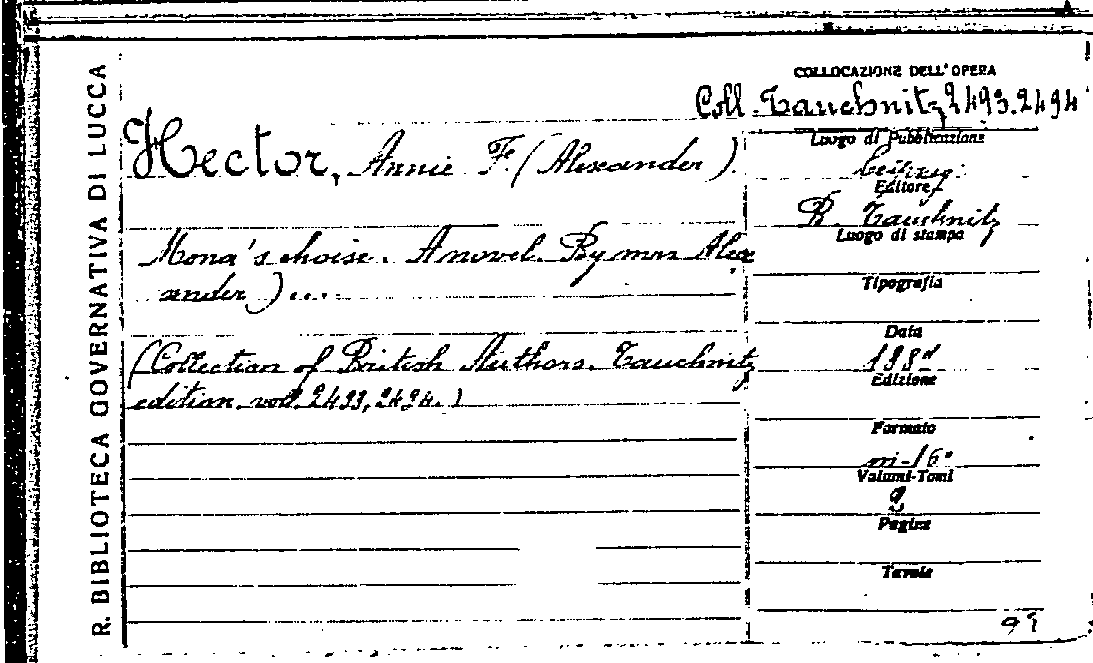 R. BIBLIOTECA GOVERNATIVA DI LUCCA
COLLOCAZIONE DELL'OPERA
Coll. Tauchnitz 2493.2494
Hector, Annie F. (Alexander).
Mona's choise. A novel. By mrs Alex
ander)...
(Collection of British Authors. Tauchnitz
edition. voll. 2493, 2494.)
Luogo di Pubblicazione
Leipzig.
Editore
B. Tauchnitz
Luogo di stampa
Tipografia
Data
Edizione
Formato
in-16°
Volumi-Tomi
2
Pagine
Tavole